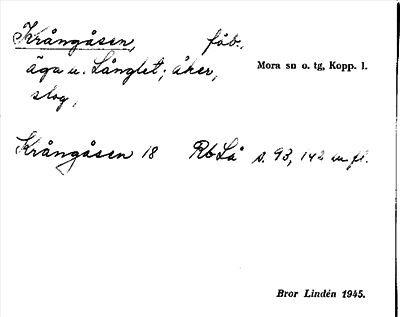 Krångåsen, fäb.,
äga u. Långlet; åker,
Mora sn o. tg, Kopp. l.
skog,
Krångåsen 18 RbLå s. 93, 142 m. fl.
Bror Lindén 1945.